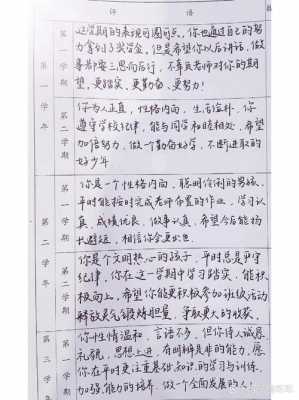 评 语
第一学年
第一学期
这学期的表现可圈可点。你也通过自己的努
力拿到了奖学金。但是希望你以后讲话,做
事都要三思而后行,不辜负老师对你的期
望。更踏实,更勤奋,更努力!
第二学期
你为人正直,性格内向,生活俭朴,你
遵守学校纪律,能与同学和睦相处,希望
加倍努力,做一个勤奋好学,不断进取的
好少年
第二学年
第一学期
你是一个性格内向,聪明伶俐的男孩。
平时能按时完成老师布置的作业,学习认
真,成绩优良,做事认真,希望今后能扬
长避短,相信你会更出色.
第二学期
你是个文明热心的孩子,平时总是严守
纪律,你在这一学期中学习踏实,能积
极向上,希望你能更积极参加班级活动
解放思想锻炼胆量,争取更大的收获。
第三学年
第一学期
你性情温和,言语不多,但你待人诚恳
礼貌,思想上进,有明辨是非的能力。愿
你在平时更注重基础知识的学习与训练.
加强能力的培养,做一个全面发展的人!